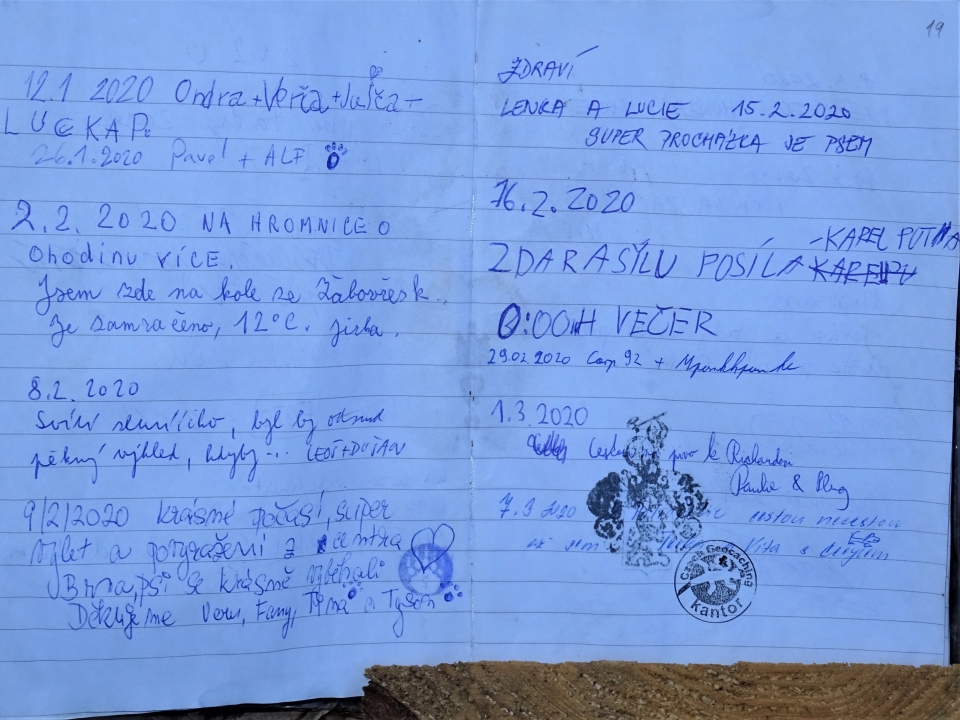 19
12.1 2020 Ondra+Verča+Julča+
LUCKAP.
26.1.2020 Pavel + ALF
2.2. 2020 NA HROMNICE O
Ohodinu VÍCE.
Jsem zde na kole ze Žabovřesk.
Je zamračeno, 12°C. Jirka.
8.2. 2020
Svítí sluníčko, byl by odsud
pěkný výhled, kdyby ... LEOŠ+DUŠAN
9/2/2020 krásné počasí, super
výlet a potvrzení z centra
Brna, psi se krásně vyběhali
Děkujeme Veru, Fany, a Tyson
ZDRAVÍ
LENKA A LUCIE 15.2.2020
SUPER PROCHÁZKA SE PSEM
16.2.2020
-KAREL PUTNA
ZDARASÍLU POSÍLÁ
0:00H VEČER
29.02.2020 Carp 92 +
1.3.2020
pivo
& Plug
7.3 2020 cestou necestou
až sem Víťa &
Czech Geocaching
kantor